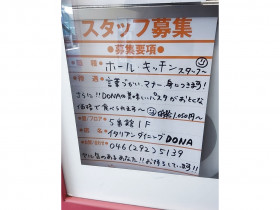 スタッフ募集
●募集要項●
●職種 ホール・キッチンスタッフ
●待遇 言葉づかい、マナー、身につきます!
さらに!! DONAの美味しいパスタがおトクな
価格で食べられます〜 時給1,050円〜
5番館1F
イタリアンダイニングDONA
046(292)5139
やる気のあるあなた!!お待ちしています!!